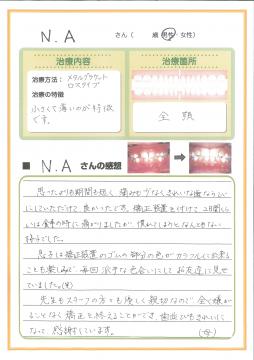 N.A さん( 歳 男性・女性)
治療内容
治療箇所
治療方法: メタルブラケット
ロスタイプ
治療の特徴
小さくて薄いのが特徴
です。
全顎
■ N.A さんの感想
思ったよりも期間も短く、痛みも少なくきれいな歯ならび
にしていただけて、良かったです。矯正装置を付けて2日間くら
いは食事の時に痛がりましたが、慣れてしまうとなんともない
様子でした。
息子は矯正装置のゴムの部分の色がカラフルに出来る
ことも楽しみで、毎回派手な色合いにしてお友達に見せ
ていました。(笑)
先生もスタッフの方々も優しく親切なので、全く嫌が
ることなく矯正を終えることができ、歯並びもきれいに
なって、感謝しています。 (母)